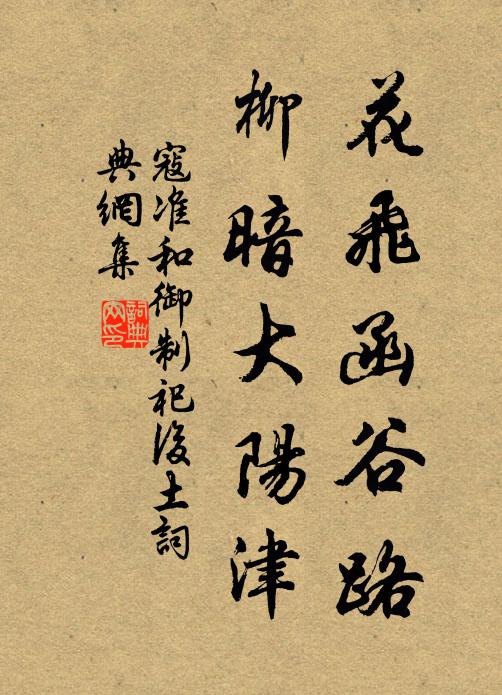 花飛函谷路
柳暗大陽津
寇准和御制祀後土詞
典網集
詞典網印